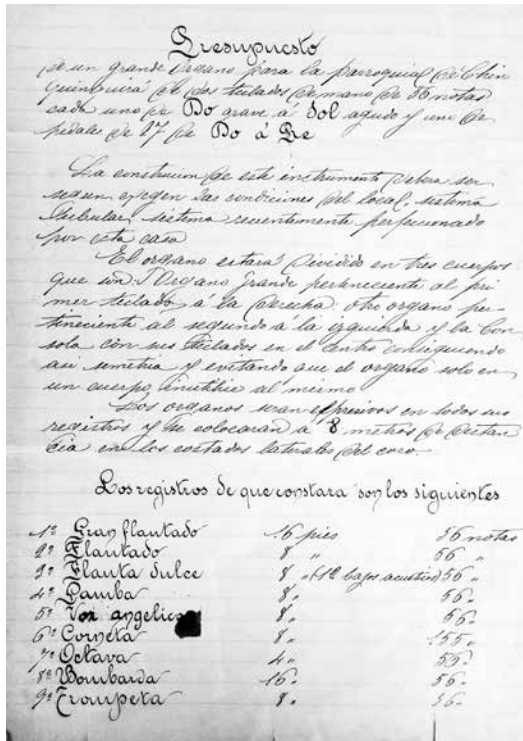 Presupuesto
de un grande Organo para la parroquial de Chin
quinquirá de dos teclados de mano de 56 notas
cada uno de Do grave á Sol agudo y uno de
pedales de 27 de Do á Re
La construcion de este instrumento debera ser
segun exigen las condiciones del local, sistema
tubular, sistema recientemente perfecionado
por esta casa
El organo estará dividido en tres cuerpos
que son: 1 Organo grande perteneciente al pri
mer teclado á la derecha otro organo per-
teneciente al segundo á la izquierda y la Con
sola con sus teclados en el centro consiguiendo
asi simetria y evitando que el organo solo en
un cuerpo inutilice al mismo
Los organos seran espresivos en todos sus
registros y se colocaran á 8 metros de distan
cia en los costados laterales del coro.-
Los registros de que constara son los siguientes
1º Gran flautado 16 pies 56 notas
2º Flautado 8 " 56 "
3º Flauta dulce 8 " (12 bajos acusticos) 56 "
4º Gamba 8 " 56 "
5º Voz angelica 8 " 56 "
6º Corneta 8 "
7º Octava 4 " 56 "
8º Bombarda 16 " 56 "
9º Trompeta 8 " 56 "